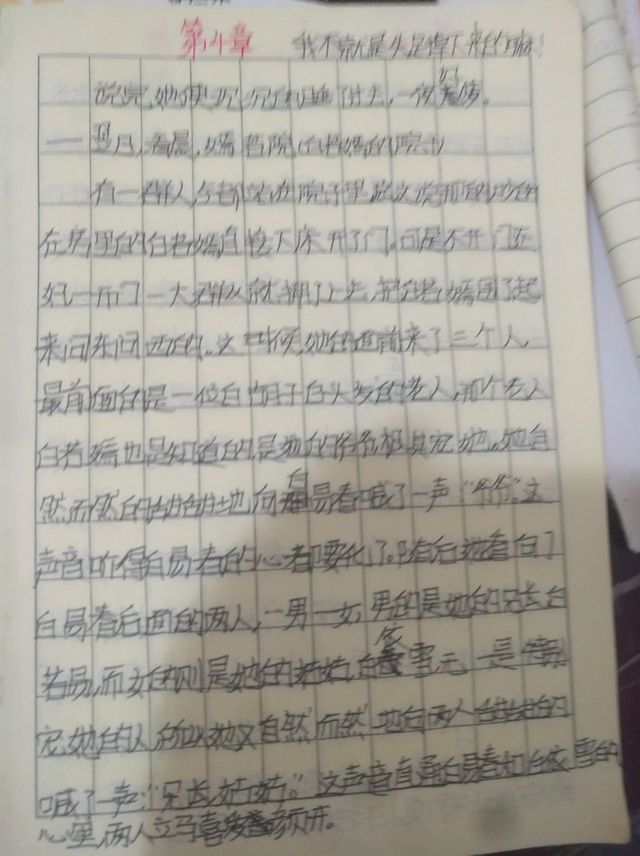 第4章 我不就是失足掉下来的嘛！
说完，她便沉沉的睡了过去，一夜好梦。
翌日，清晨，嫣若院（白若嫣的院子）
有一群人，全都站在院子里
在房里的白若嫣直接下床开了门。可是不开门还
好，一开门一大群人就拥了上去，把白若嫣围了起
来问东问西的。这时候她的面前来了三个人，
最前面的是一位白胡子白头发的老人，那个老人
白若嫣也是知道的是她的爷爷极其宠她。她自
然而然的甜甜地向白易春喊了一声“爷爷”这
声音听得白易春的心都要化了。随后她看向了
白易春后面的两人，一男一女，男的是她的兄长白
若易，而女的则是她的姑姑，白依雪，无一是不
宠她的人所以她又自然而然地向两人甜甜的
喊了一声：“兄长，姑姑。”这声音直通白易春和白依雪的
心里，两人立马喜笑颜开。